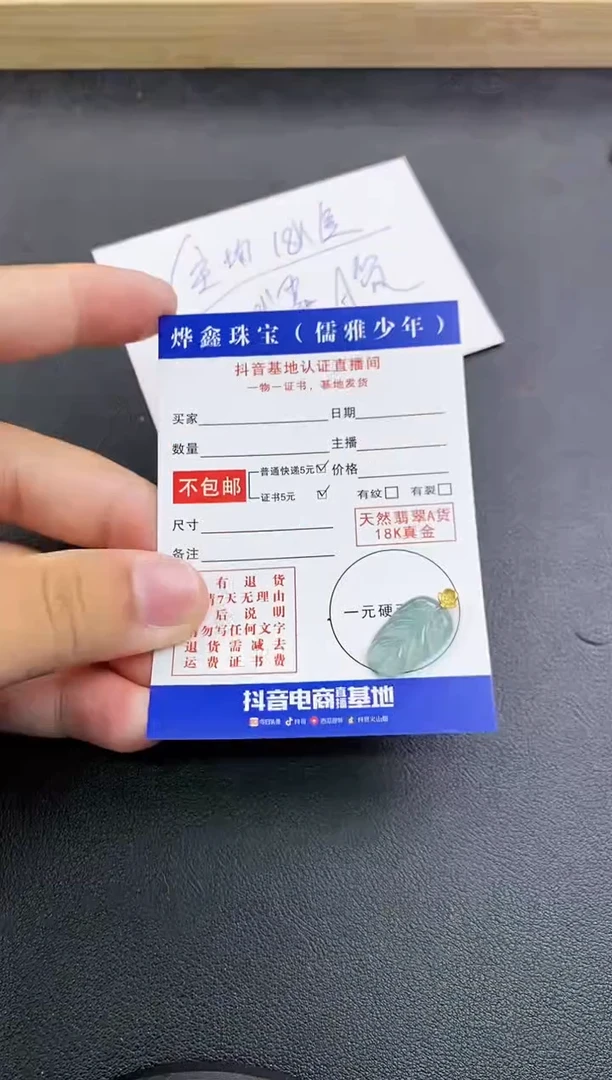 18K
A货
烨鑫珠宝（儒雅少年）
抖音基地认证直播间
一物一证书，基地发货
买家
日期
数量
主播
不包邮
普通快递5元
价格
证书5元
有纹
有裂
天然翡翠A货
18K真金
尺寸
备注
有退货
7天无理由
后说明
勿写任何文字
退货需减去
运费证书费
一元硬
抖音电商直播基地
今日头条 抖音 西瓜视频 抖音火山版